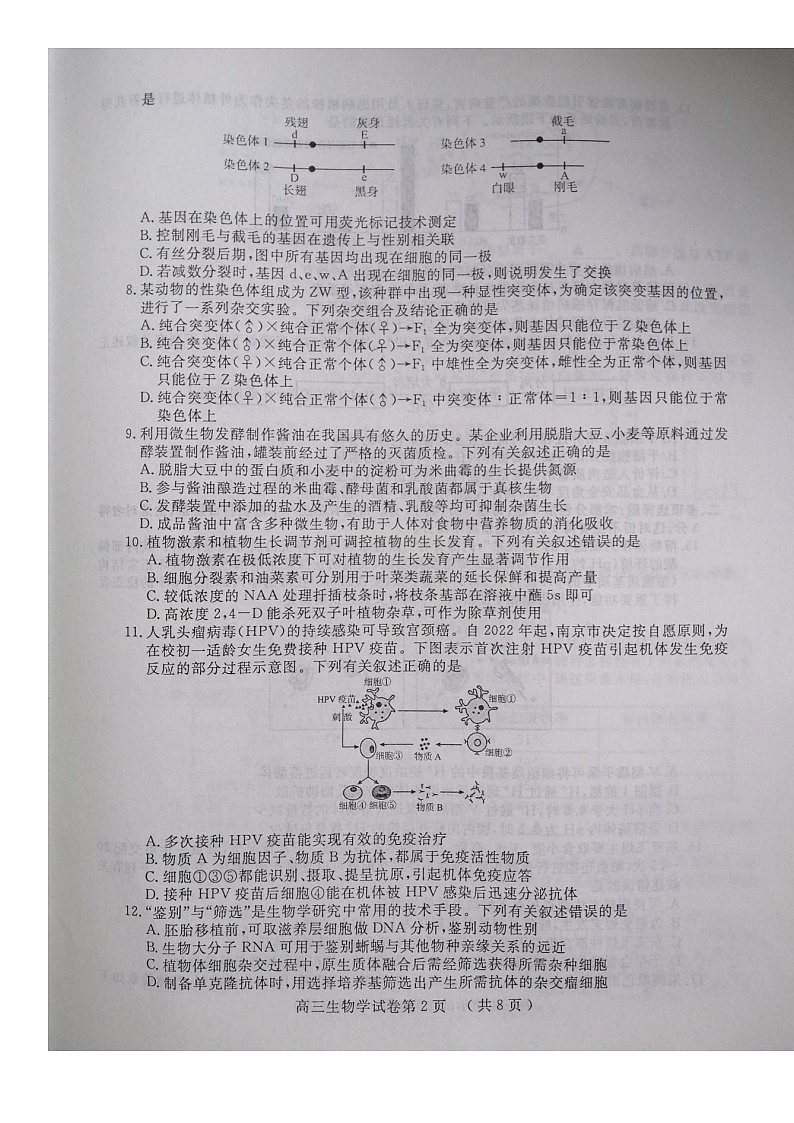 是
残翅 灰身 截毛
d E a
染色体1 染色体3
染色体2 染色体4
D e w A
长翅 黑身 白眼 刚毛
A. 基因在染色体上的位置可用荧光标记技术测定
B. 控制刚毛与截毛的基因在遗传上与性别相关联
C. 有丝分裂后期,图中所有基因均出现在细胞的同一极
D. 若减数分裂时,基因 d、e、w、A 出现在细胞的同一极,则说明发生了交换
8. 某动物的性染色体组成为 ZW 型,该种群中出现一种显性突变体,为确定该突变基因的位置,
进行了一系列杂交实验。下列杂交组合及结论正确的是
A. 纯合突变体(♂)×纯合正常个体(♀)→F₁ 全为突变体,则基因只能位于 Z 染色体上
B. 纯合突变体(♂)×纯合正常个体(♀)→F₁ 全为突变体,则基因只能位于常染色体上
C. 纯合突变体(♀)×纯合正常个体(♂)→F₁ 中雄性全为突变体,雌性全为正常个体,则基因
只能位于 Z 染色体上
D. 纯合突变体(♀)×纯合正常个体(♂)→F₁ 中突变体∶正常体=1∶1,则基因只能位于常
染色体上
9. 利用微生物发酵制作酱油在我国具有悠久的历史。某企业利用脱脂大豆、小麦等原料通过发
酵装置制作酱油,罐装前经过了严格的灭菌质检。下列有关叙述正确的是
A. 脱脂大豆中的蛋白质和小麦中的淀粉可为米曲霉的生长提供氮源
B. 参与酱油酿造过程的米曲霉、酵母菌和乳酸菌都属于真核生物
C. 发酵装置中添加的盐水及产生的酒精、乳酸等均可抑制杂菌生长
D. 成品酱油中富含多种微生物,有助于人体对食物中营养物质的消化吸收
10. 植物激素和植物生长调节剂可调控植物的生长发育。下列有关叙述错误的是
A. 植物激素在极低浓度下可对植物的生长发育产生显著调节作用
B. 细胞分裂素和油菜素可分别用于叶菜类蔬菜的延长保鲜和提高产量
C. 较低浓度的 NAA 处理扦插枝条时,将枝条基部在溶液中蘸 5s 即可
D. 高浓度 2,4-D 能杀死双子叶植物杂草,可作为除草剂使用
11. 人乳头瘤病毒(HPV)的持续感染可导致宫颈癌。自 2022 年起,南京市决定按自愿原则,为
在校初一适龄女生免费接种 HPV 疫苗。下图表示首次注射 HPV 疫苗引起机体发生免疫
反应的部分过程示意图。下列有关叙述正确的是
细胞①
HPV疫苗 细胞①
刺激
细胞③ 物质A 细胞②
细胞④ 细胞⑤ 物质B
A. 多次接种 HPV 疫苗能实现有效的免疫治疗
B. 物质 A 为细胞因子、物质 B 为抗体,都属于免疫活性物质
C. 细胞①③⑤都能识别、摄取、提呈抗原,引起机体免疫应答
D. 接种 HPV 疫苗后细胞④能在机体被 HPV 感染后迅速分泌抗体
12. “鉴别”与“筛选”是生物学研究中常用的技术手段。下列有关叙述错误的是
A. 胚胎移植前,可取滋养层细胞做 DNA 分析,鉴别动物性别
B. 生物大分子 RNA 可用于鉴别蜥蜴与其他物种亲缘关系的远近
C. 植物体细胞杂交过程中,原生质体融合后需经筛选获得所需杂种细胞
D. 制备单克隆抗体时,用选择培养基筛选出产生所需抗体的杂交瘤细胞
高三生物学试卷第 2 页 (共 8 页)